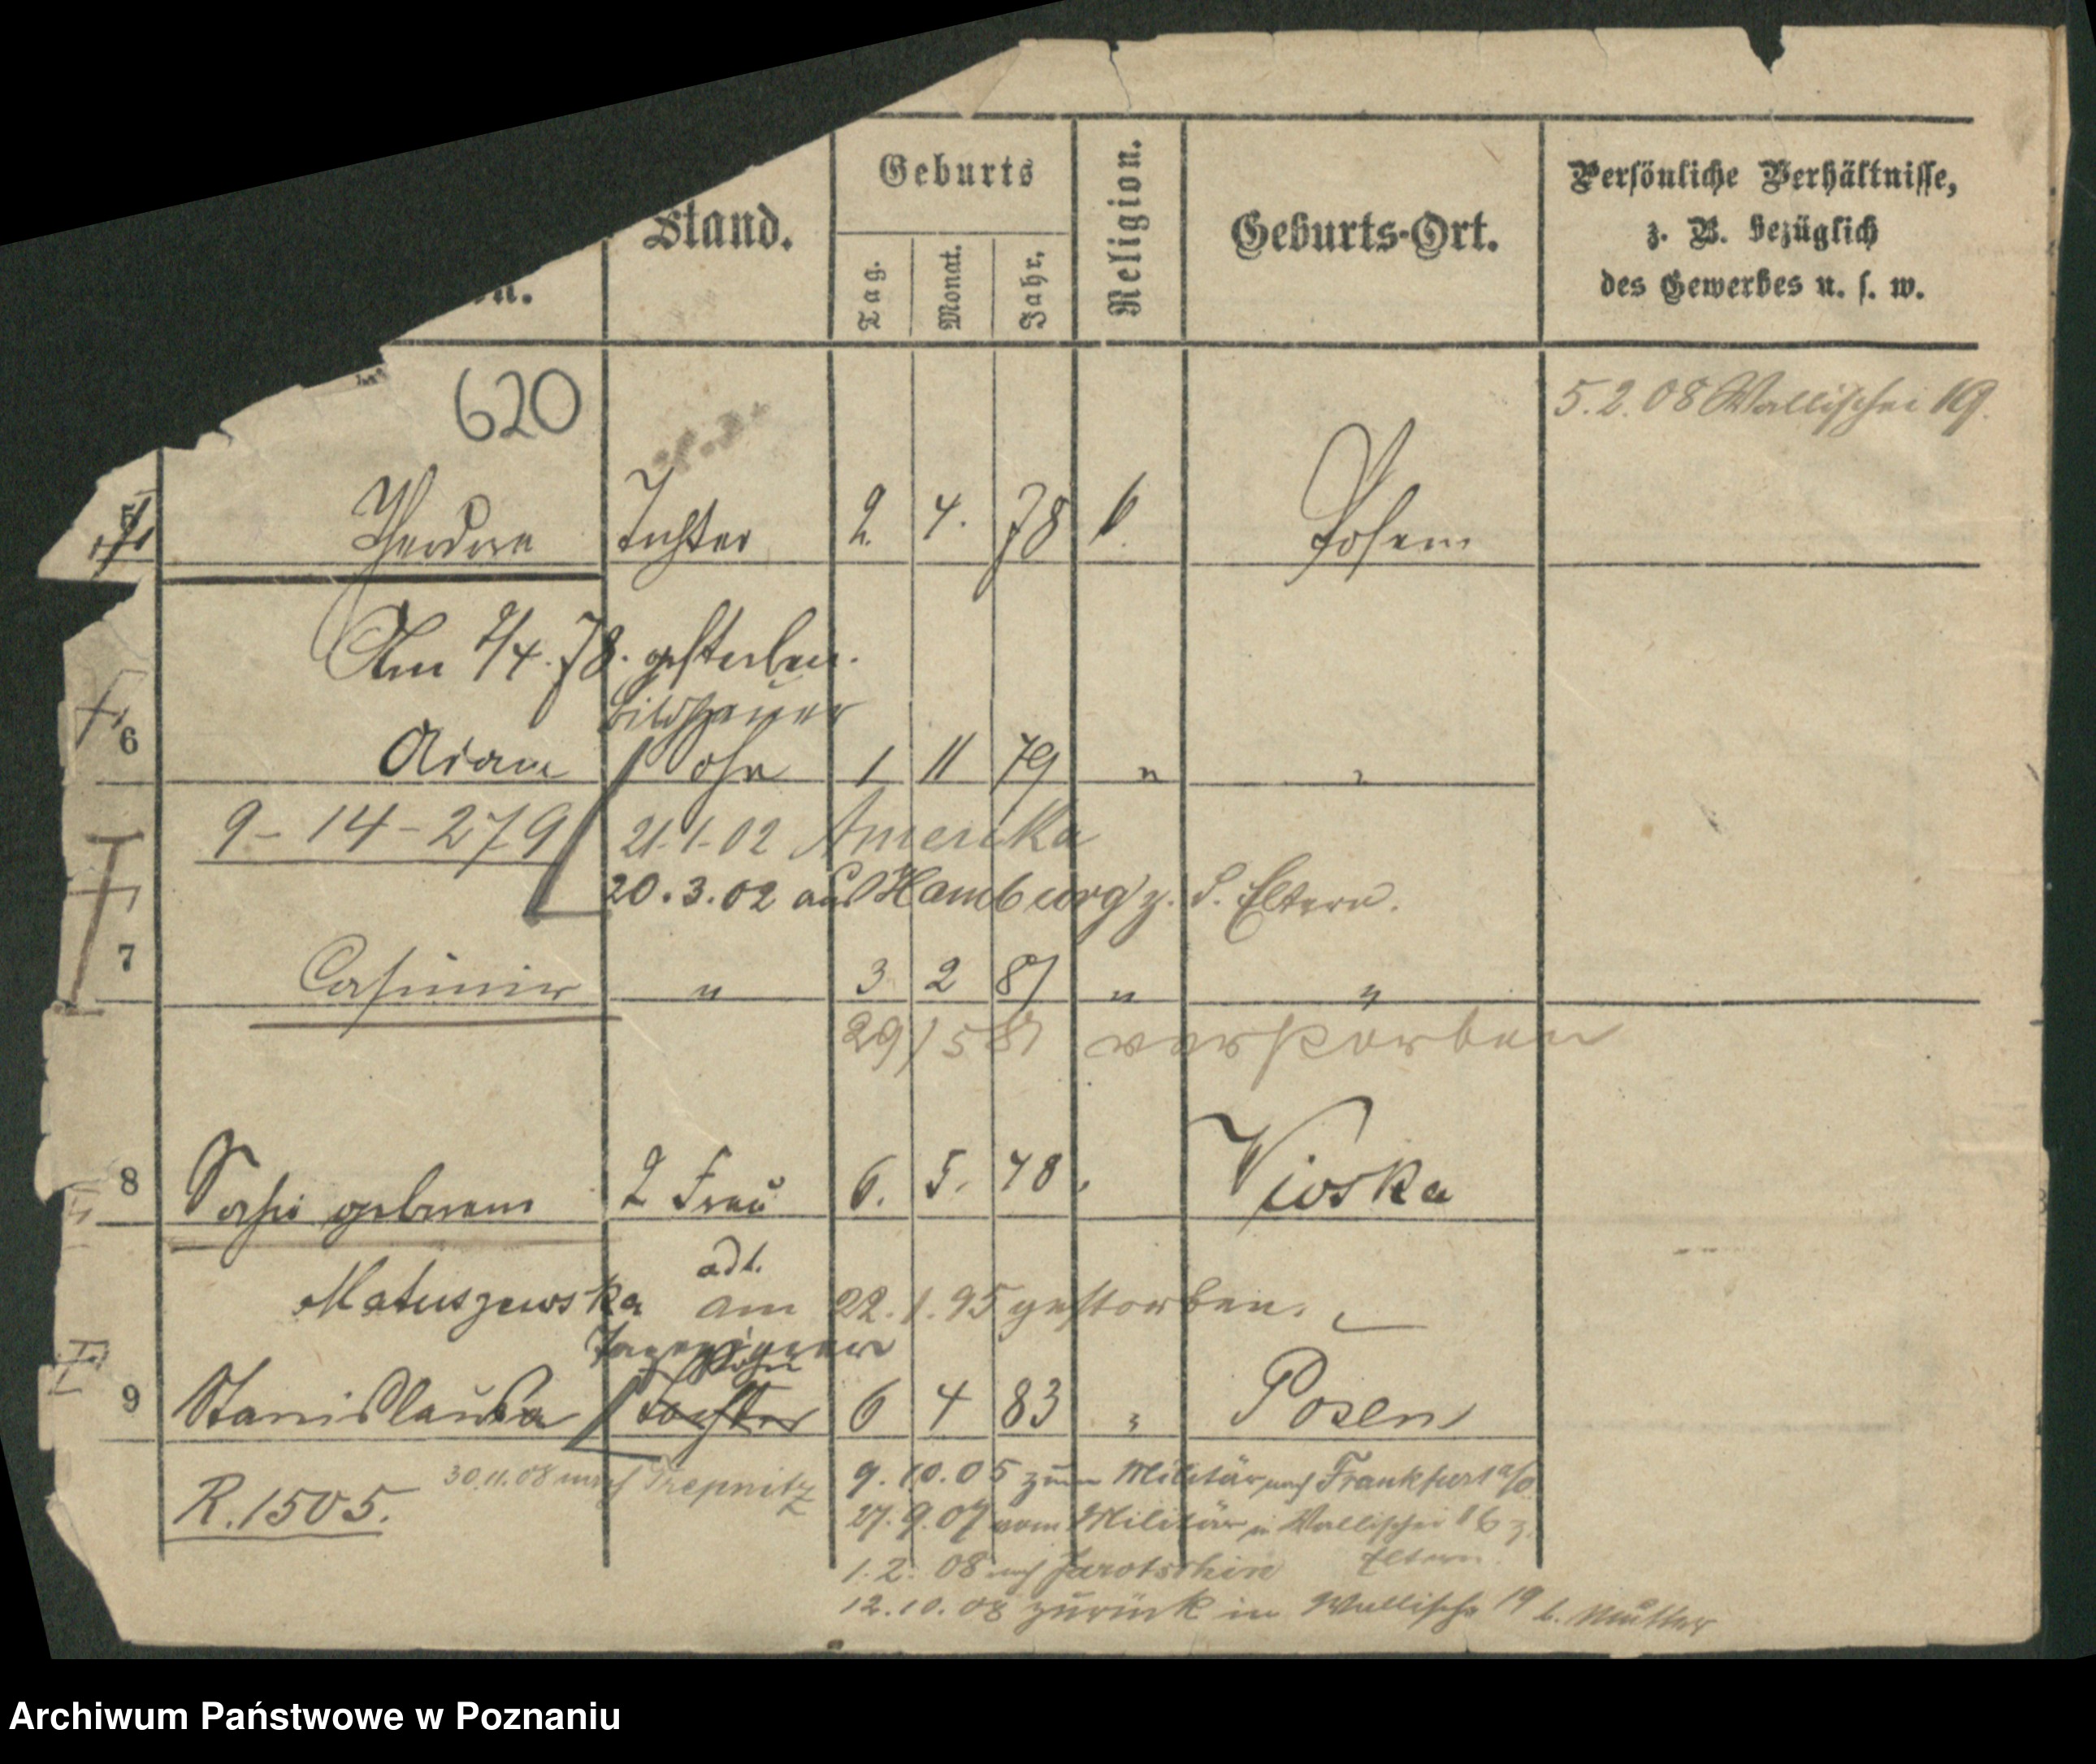 Stand.
Geburts
Tag.
Monat.
Jahr.
Religion.
Geburts-Ort.
Persönliche Verhältnisse,
z. B. bezüglich
des Gewerbes u. s. w.
620
5.2.08 Wallischei 19.
5 Theodora Tochter 2. 4. 78 k. Posen
Am 9/4. 78. gestorben.
Bildhauer
6 Adam Sohn 1 11 79 " "
9-14-279 21.1.02 Amerika
20.3.02 aus Hamburg z. d. Eltern.
7 Casimir " 3 2 87 " "
29/5 87 verstorben
8 Sophie geborene 2 Frau 6. 5. 48. Kioska
adl.
Matuszewska am 22.1.95 gestorben.
Sohn
9 Stanislausa Tochter 6 4 83 " Posen
R. 1505. 30.11.08 nach Trepnitz
9.10.05 zum Militär nach Frankfurt a/O
27.9.07 vom Militär in Wallischei 16 z.
Eltern.
1.2.08 nach Jarotschin
12.10.08 zurück in Wallische 19 b. Mutter
Archiwum Państwowe w Poznaniu